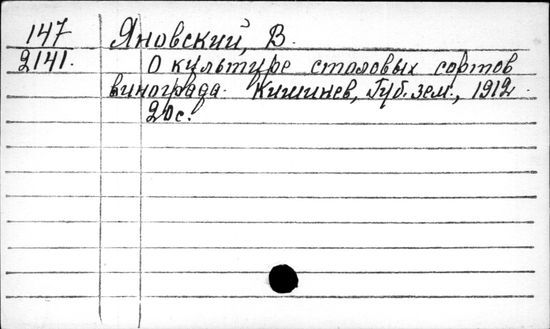 147 Яновский, В.
2141. О культуре столовых сортов
винограда. Кишинев, Губ. зем., 1912.
20с.